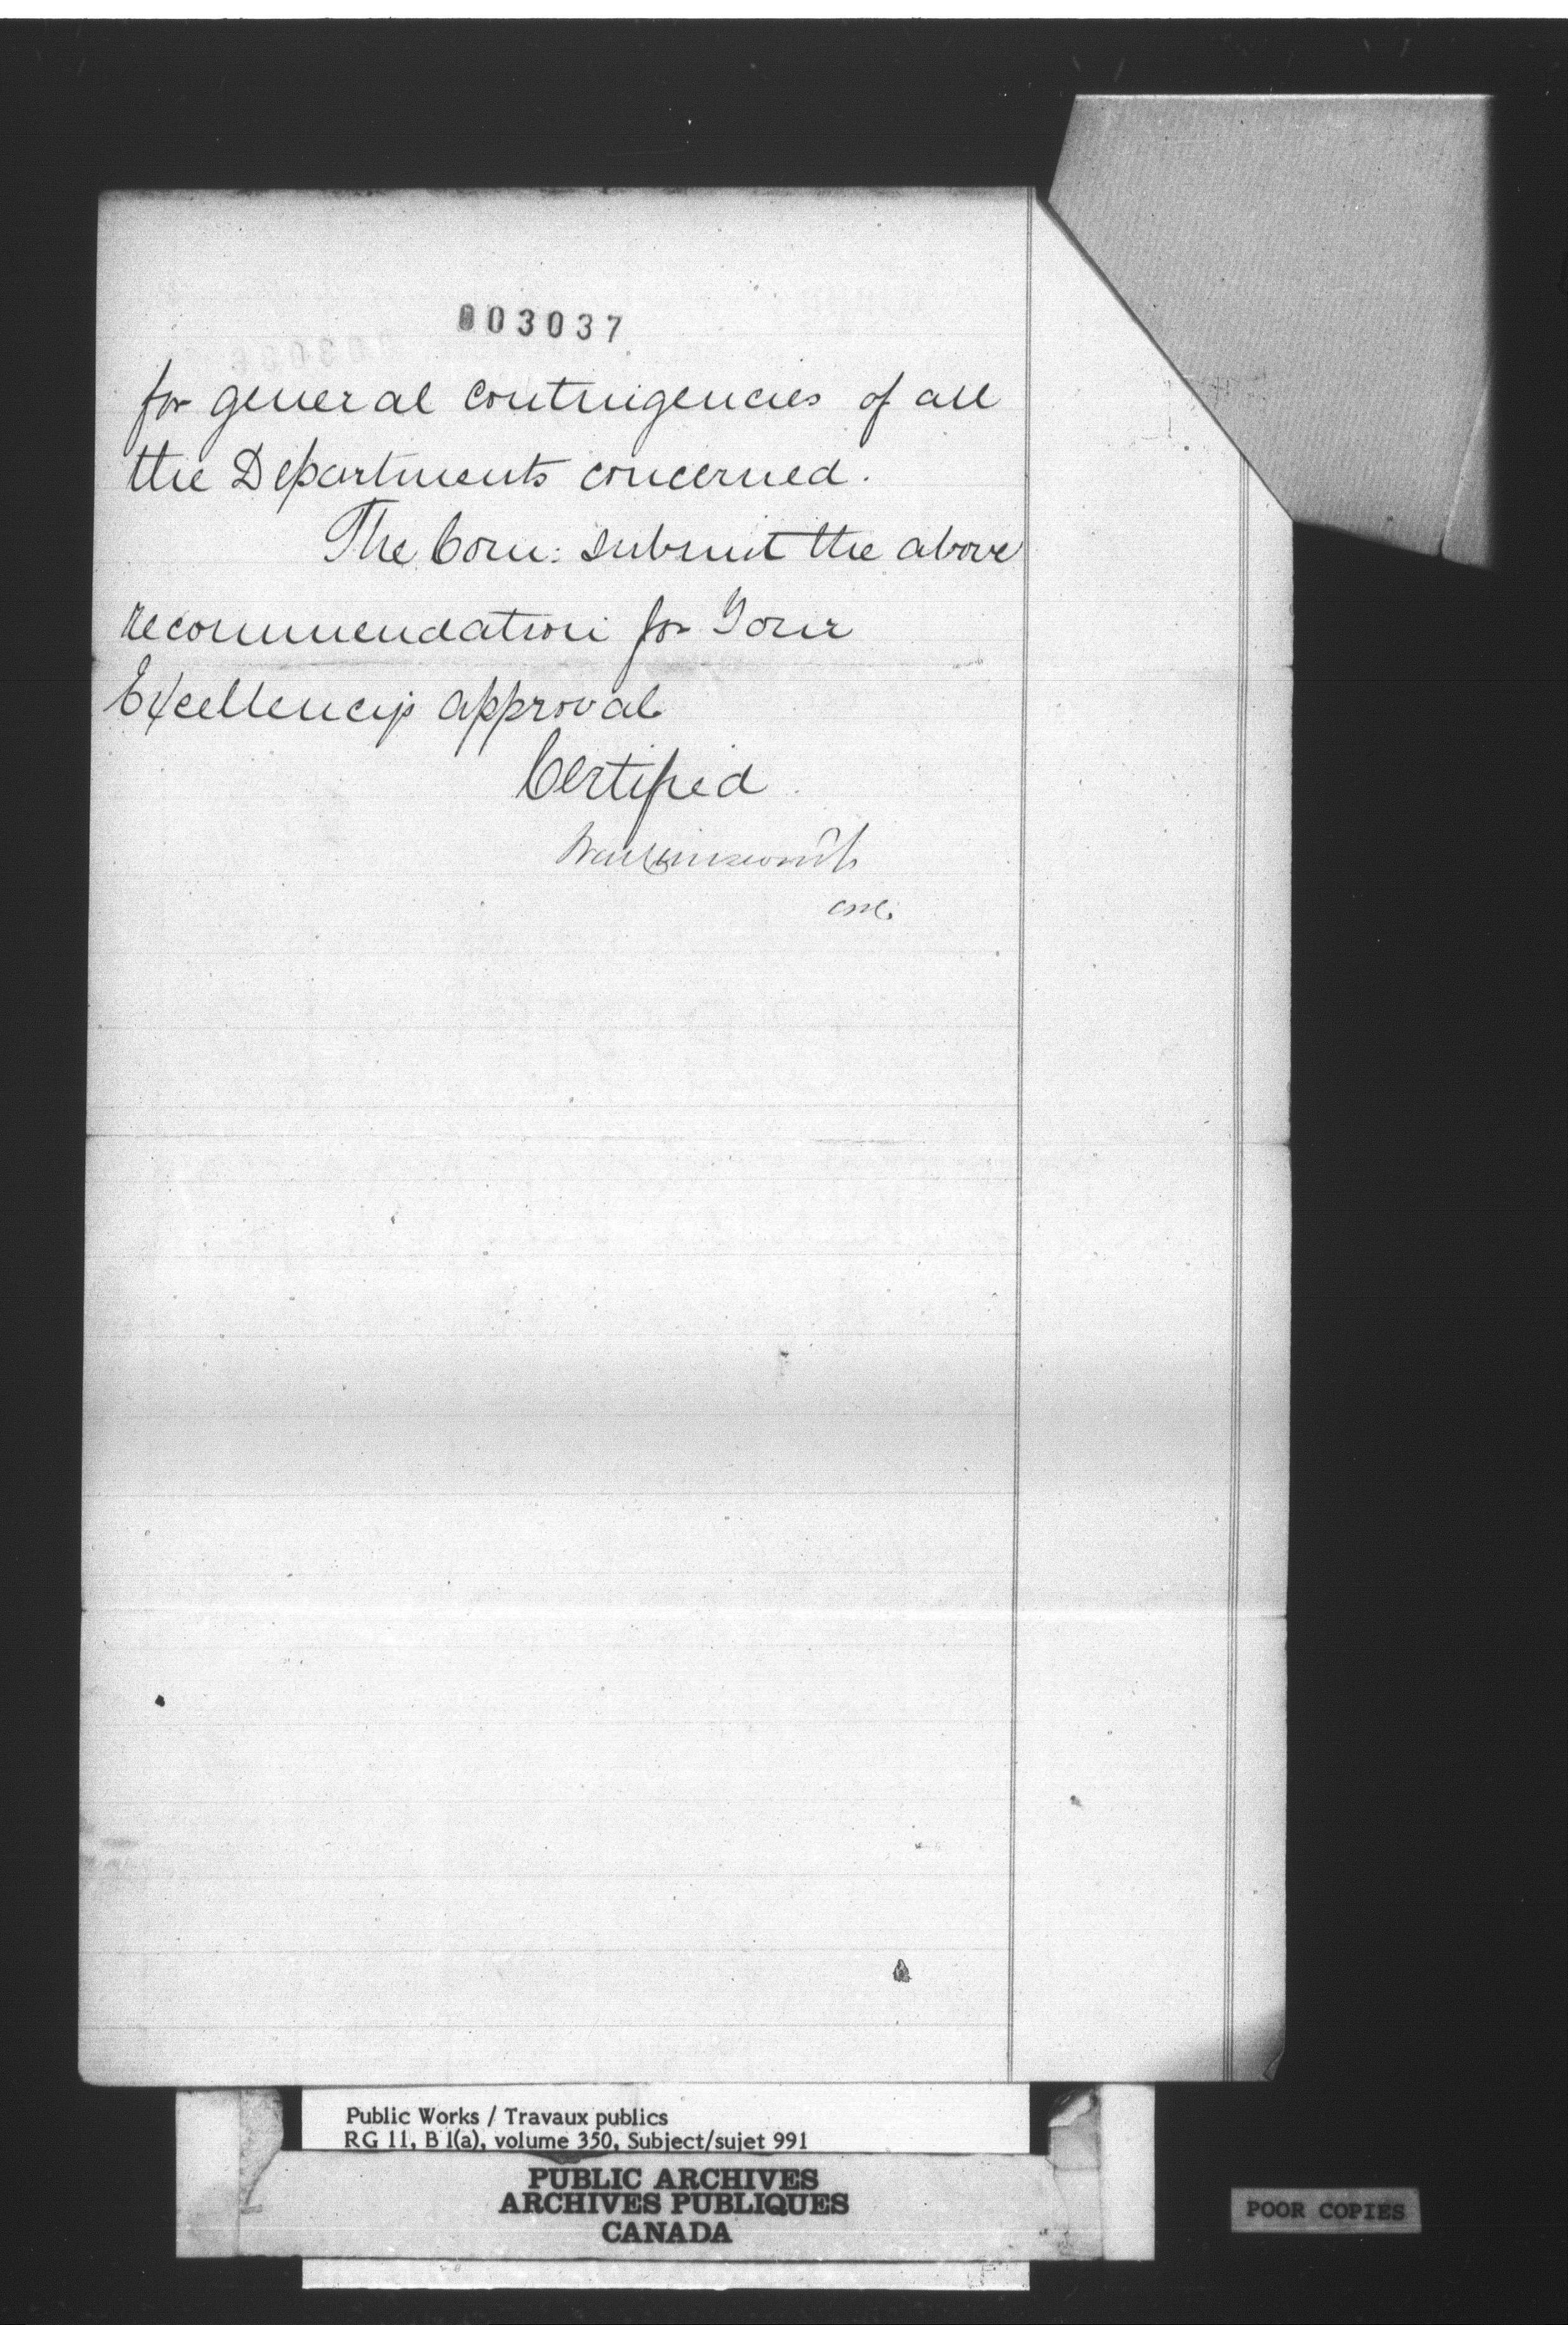 003037
for general contingencies of all
the Departments concerned.
The Com: submit the above
recommendation for Your
Excellency's approval
Certified
Public Works / Travaux publics
RG 11, B 1(a), volume 350, Subject/sujet 991
PUBLIC ARCHIVES
ARCHIVES PUBLIQUES
CANADA
POOR COPIES